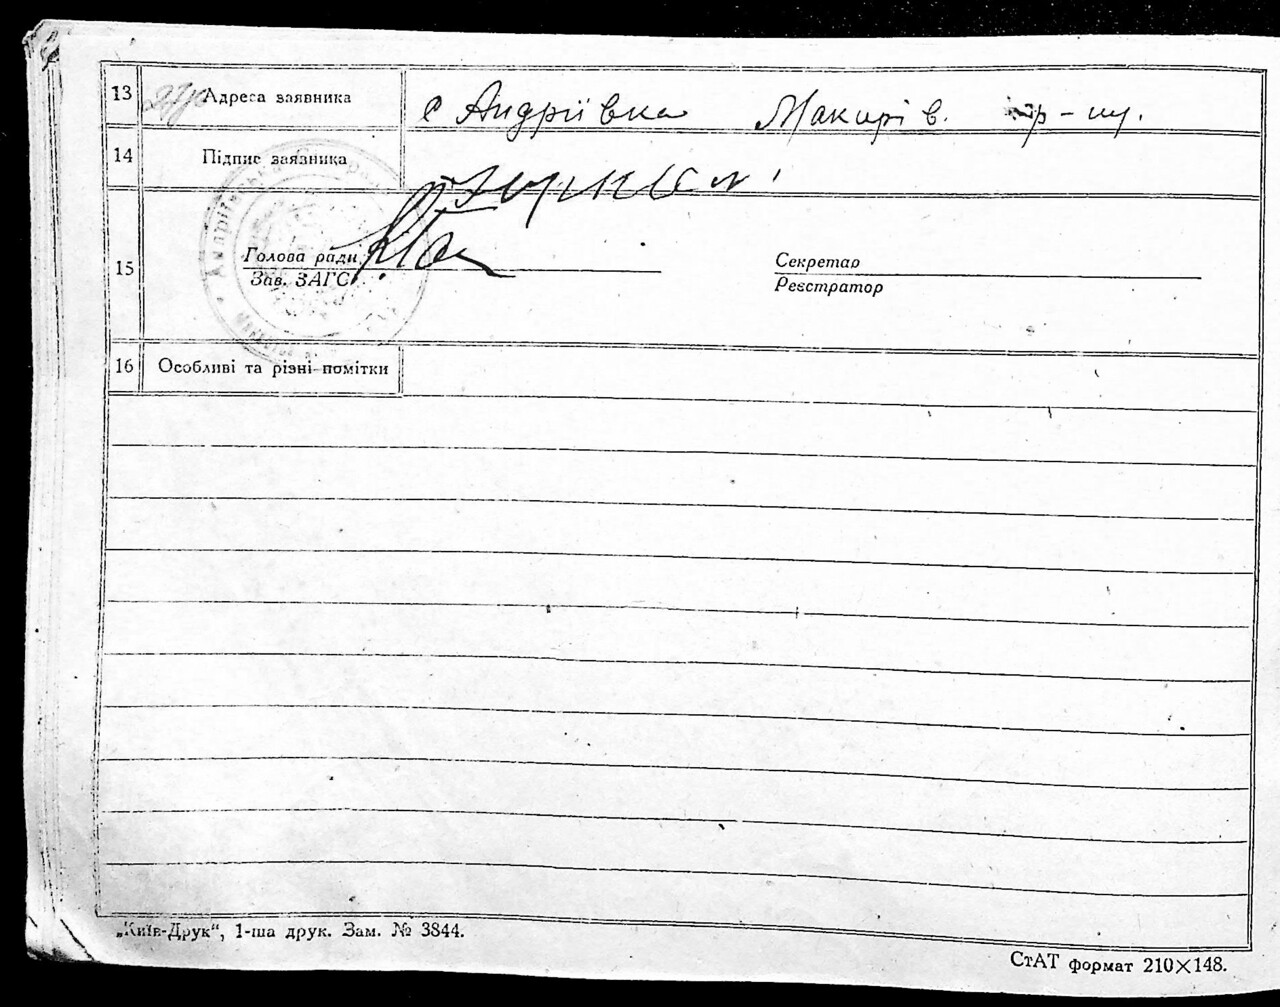 13 Адреса заявника с Андріївка Макарів. р-ну.
14 Підпис заявника
15 Голова ради Секретар
Зав. ЗАГС Реєстратор
16 Особливі та різні помітки
„Київ-Друк“, 1-ша друк. Зам. № 3844.
СтАТ формат 210×148.